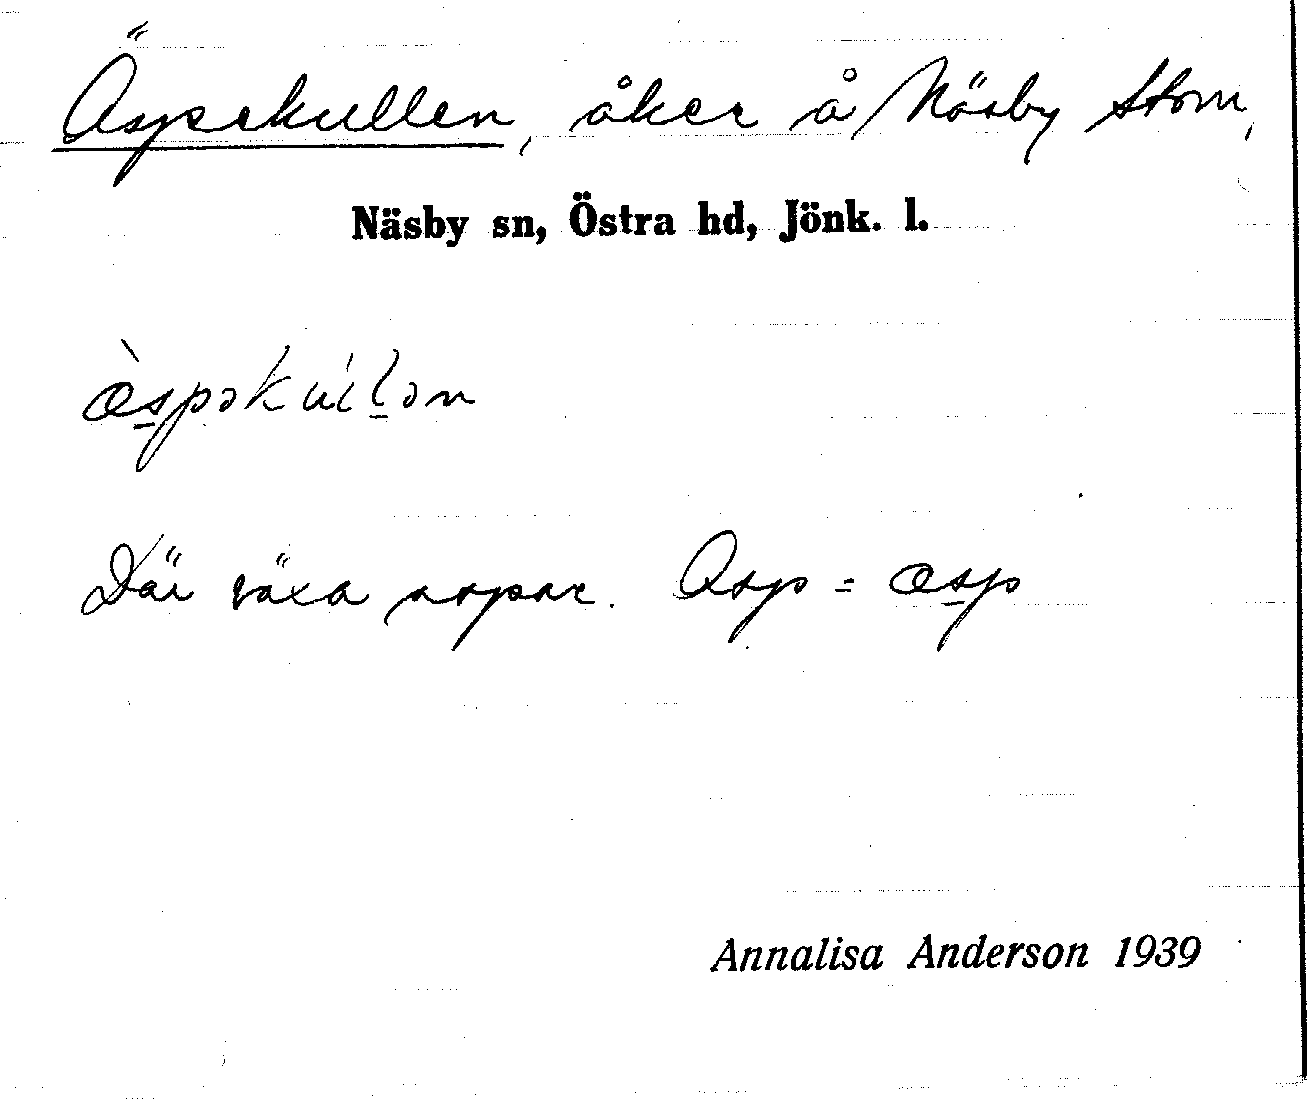 Äspekullen, åker å Näsby Stom,
Näsby sn, Östra hd, Jönk. l.
æ̀spəkúl̠ən
Där växa aspar. Asp = æs̠p
Annalisa Anderson 1939